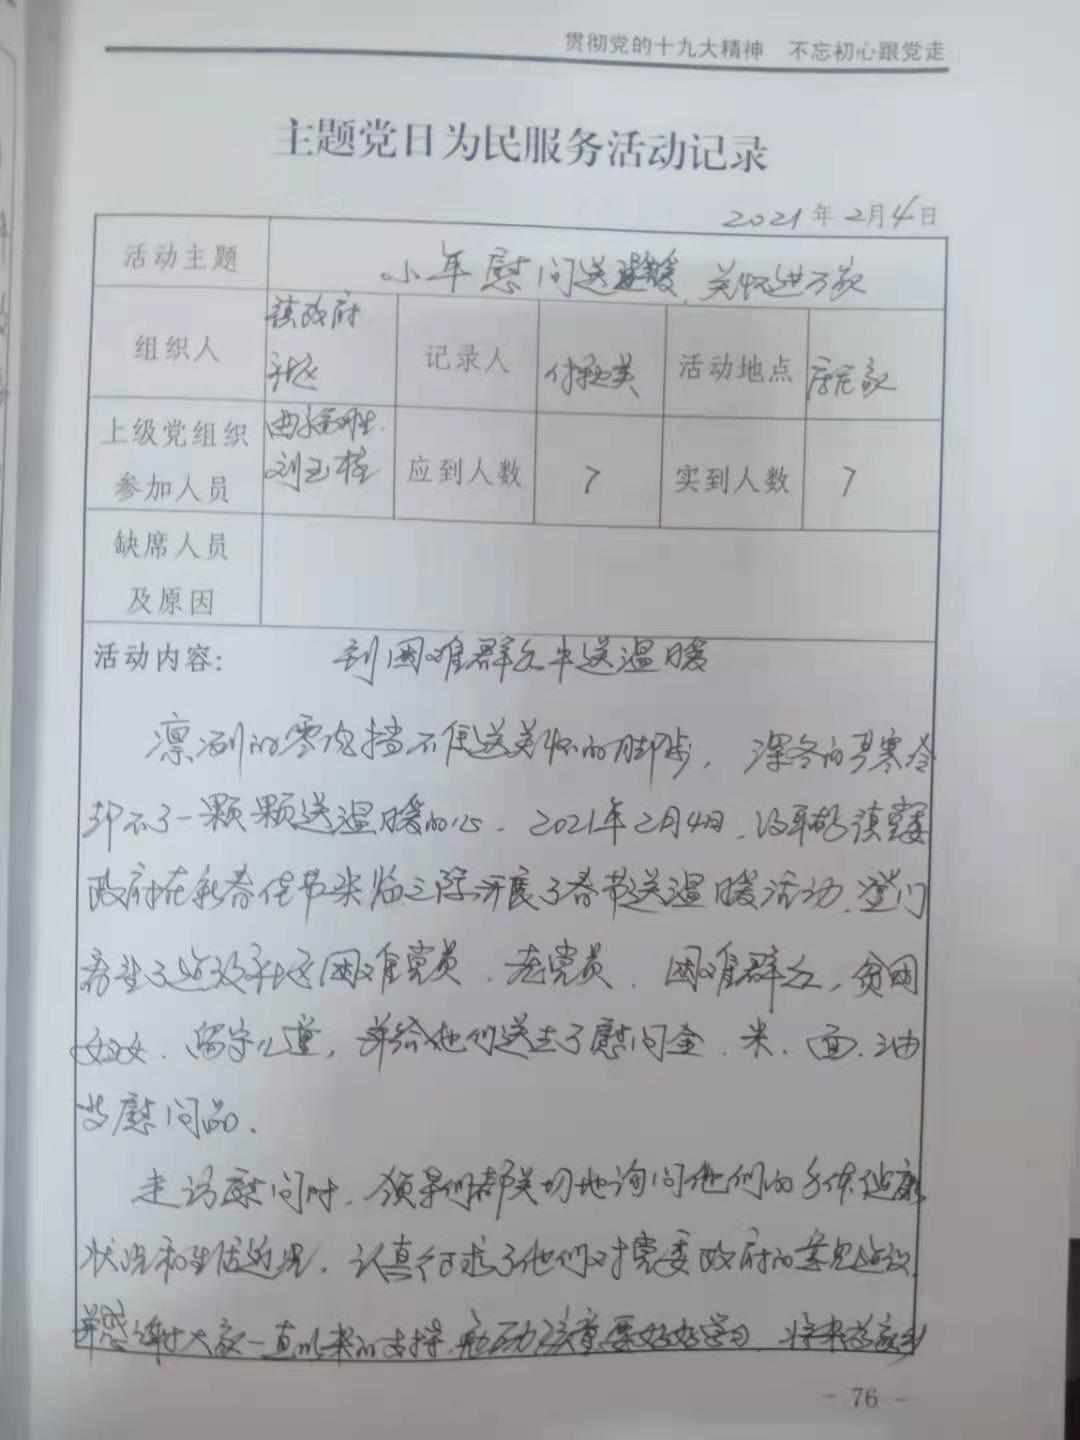 贯彻党的十九大精神 不忘初心跟党走
主题党日为民服务活动记录
2021年2月4日
活动主题 小年慰问送温暖、关怀进万家
组织人 镇政府 社区 记录人 付 英 活动地点 家
上级党组织参加人员 曲 胜 刘玉 应到人数 7 实到人数 7
缺席人员及原因
活动内容: 到困难群众中送温暖
凛冽的 挡不住送关怀的脚步，深冬的 寒冷
却不了一颗颗送温暖的心。2021年2月4日， 镇党委
政府在新春佳节来临之际开展了春节送温暖活动，登门
看望了 社区困难党员、老党员、困难群众，贫困
妇女、留守儿童，并给他们送去了慰问金、米、面、油
等慰问品。
走访慰问时，领导们都关切地询问他们的身体健康
状况和生活近况，认真征求了他们对党委政府的意见建议，
并感谢大家一直以来的支持， 儿童要好好学习，将来为家乡
- 76 -